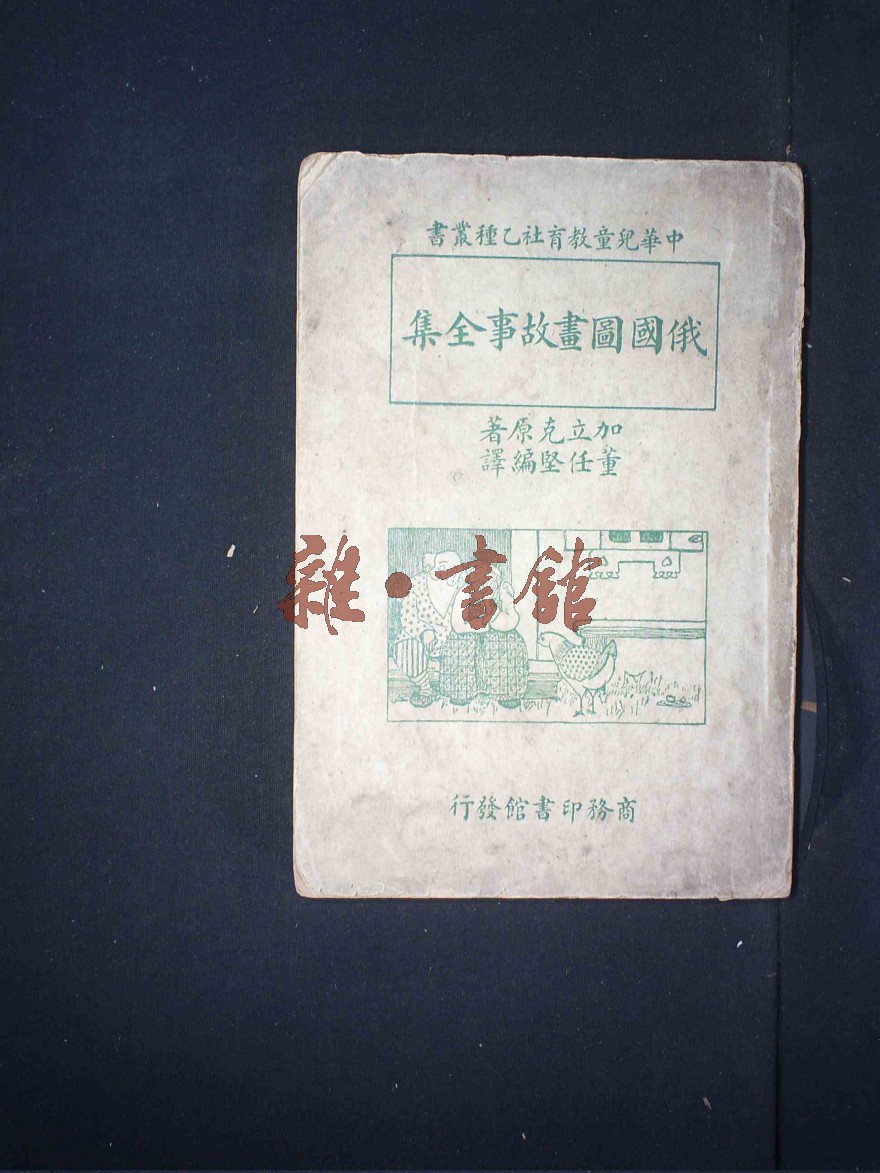 中華兒童教育社乙種叢書
俄國圖畫故事全集
加立克原著
董任堅編譯
雜·書館
商務印書館發行